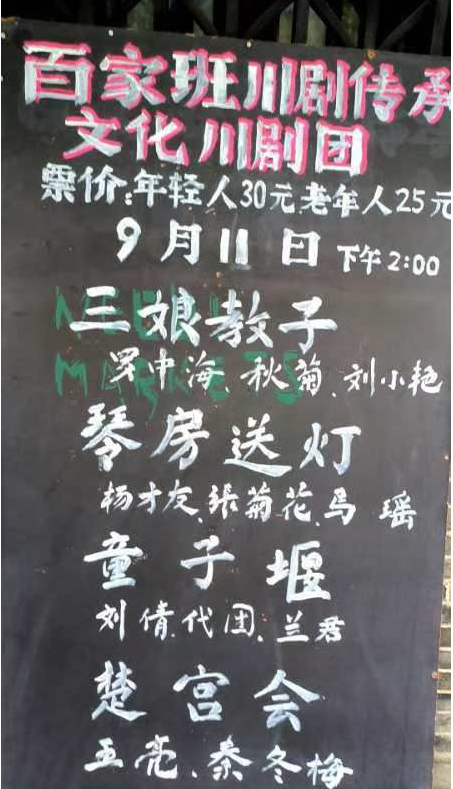 百家班川剧传承
文化川剧团
票价:年轻人30元.老年人25元
9月11日 下午2:00
三娘教子
罗中海、秋菊、刘小艳
琴房送灯
杨才友、张菊花、马瑶
童子堰
刘倩、代团、兰君
楚宫会
王亮、秦冬梅